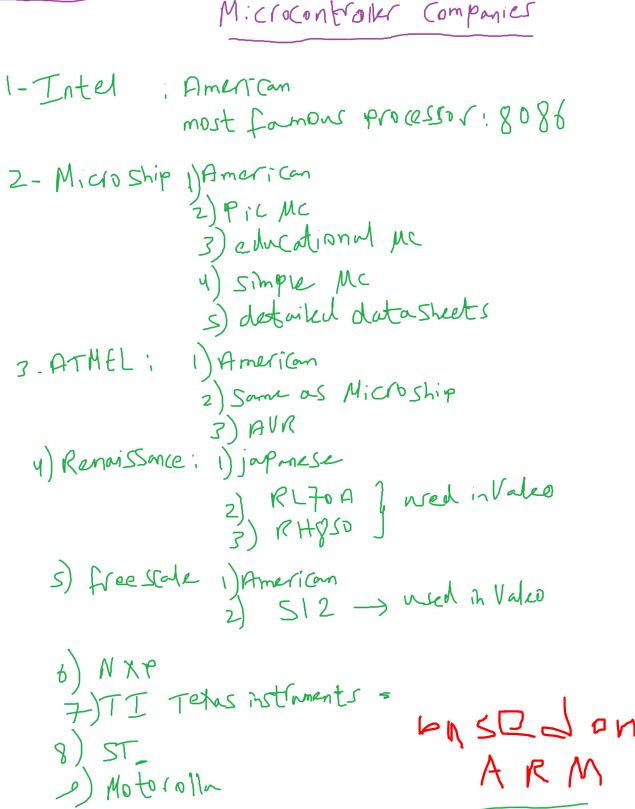 Microcontroller Companies
1- Intel : American
most famous processor: 8086
2- Microship 1) American
2) Pic Mc
3) educational Mc
4) simple Mc
5) detailed datasheets
3. ATMEL: 1) American
2) Same as Microship
3) AVR
4) Renaissance: 1) japanese
2) RL70A
3) RH850 } used in Valeo
5) freescale 1) American
2) S12 → used in Valeo
6) NXP
7) TI Texas instruments
8) ST
9) Motorolla
based on
ARM